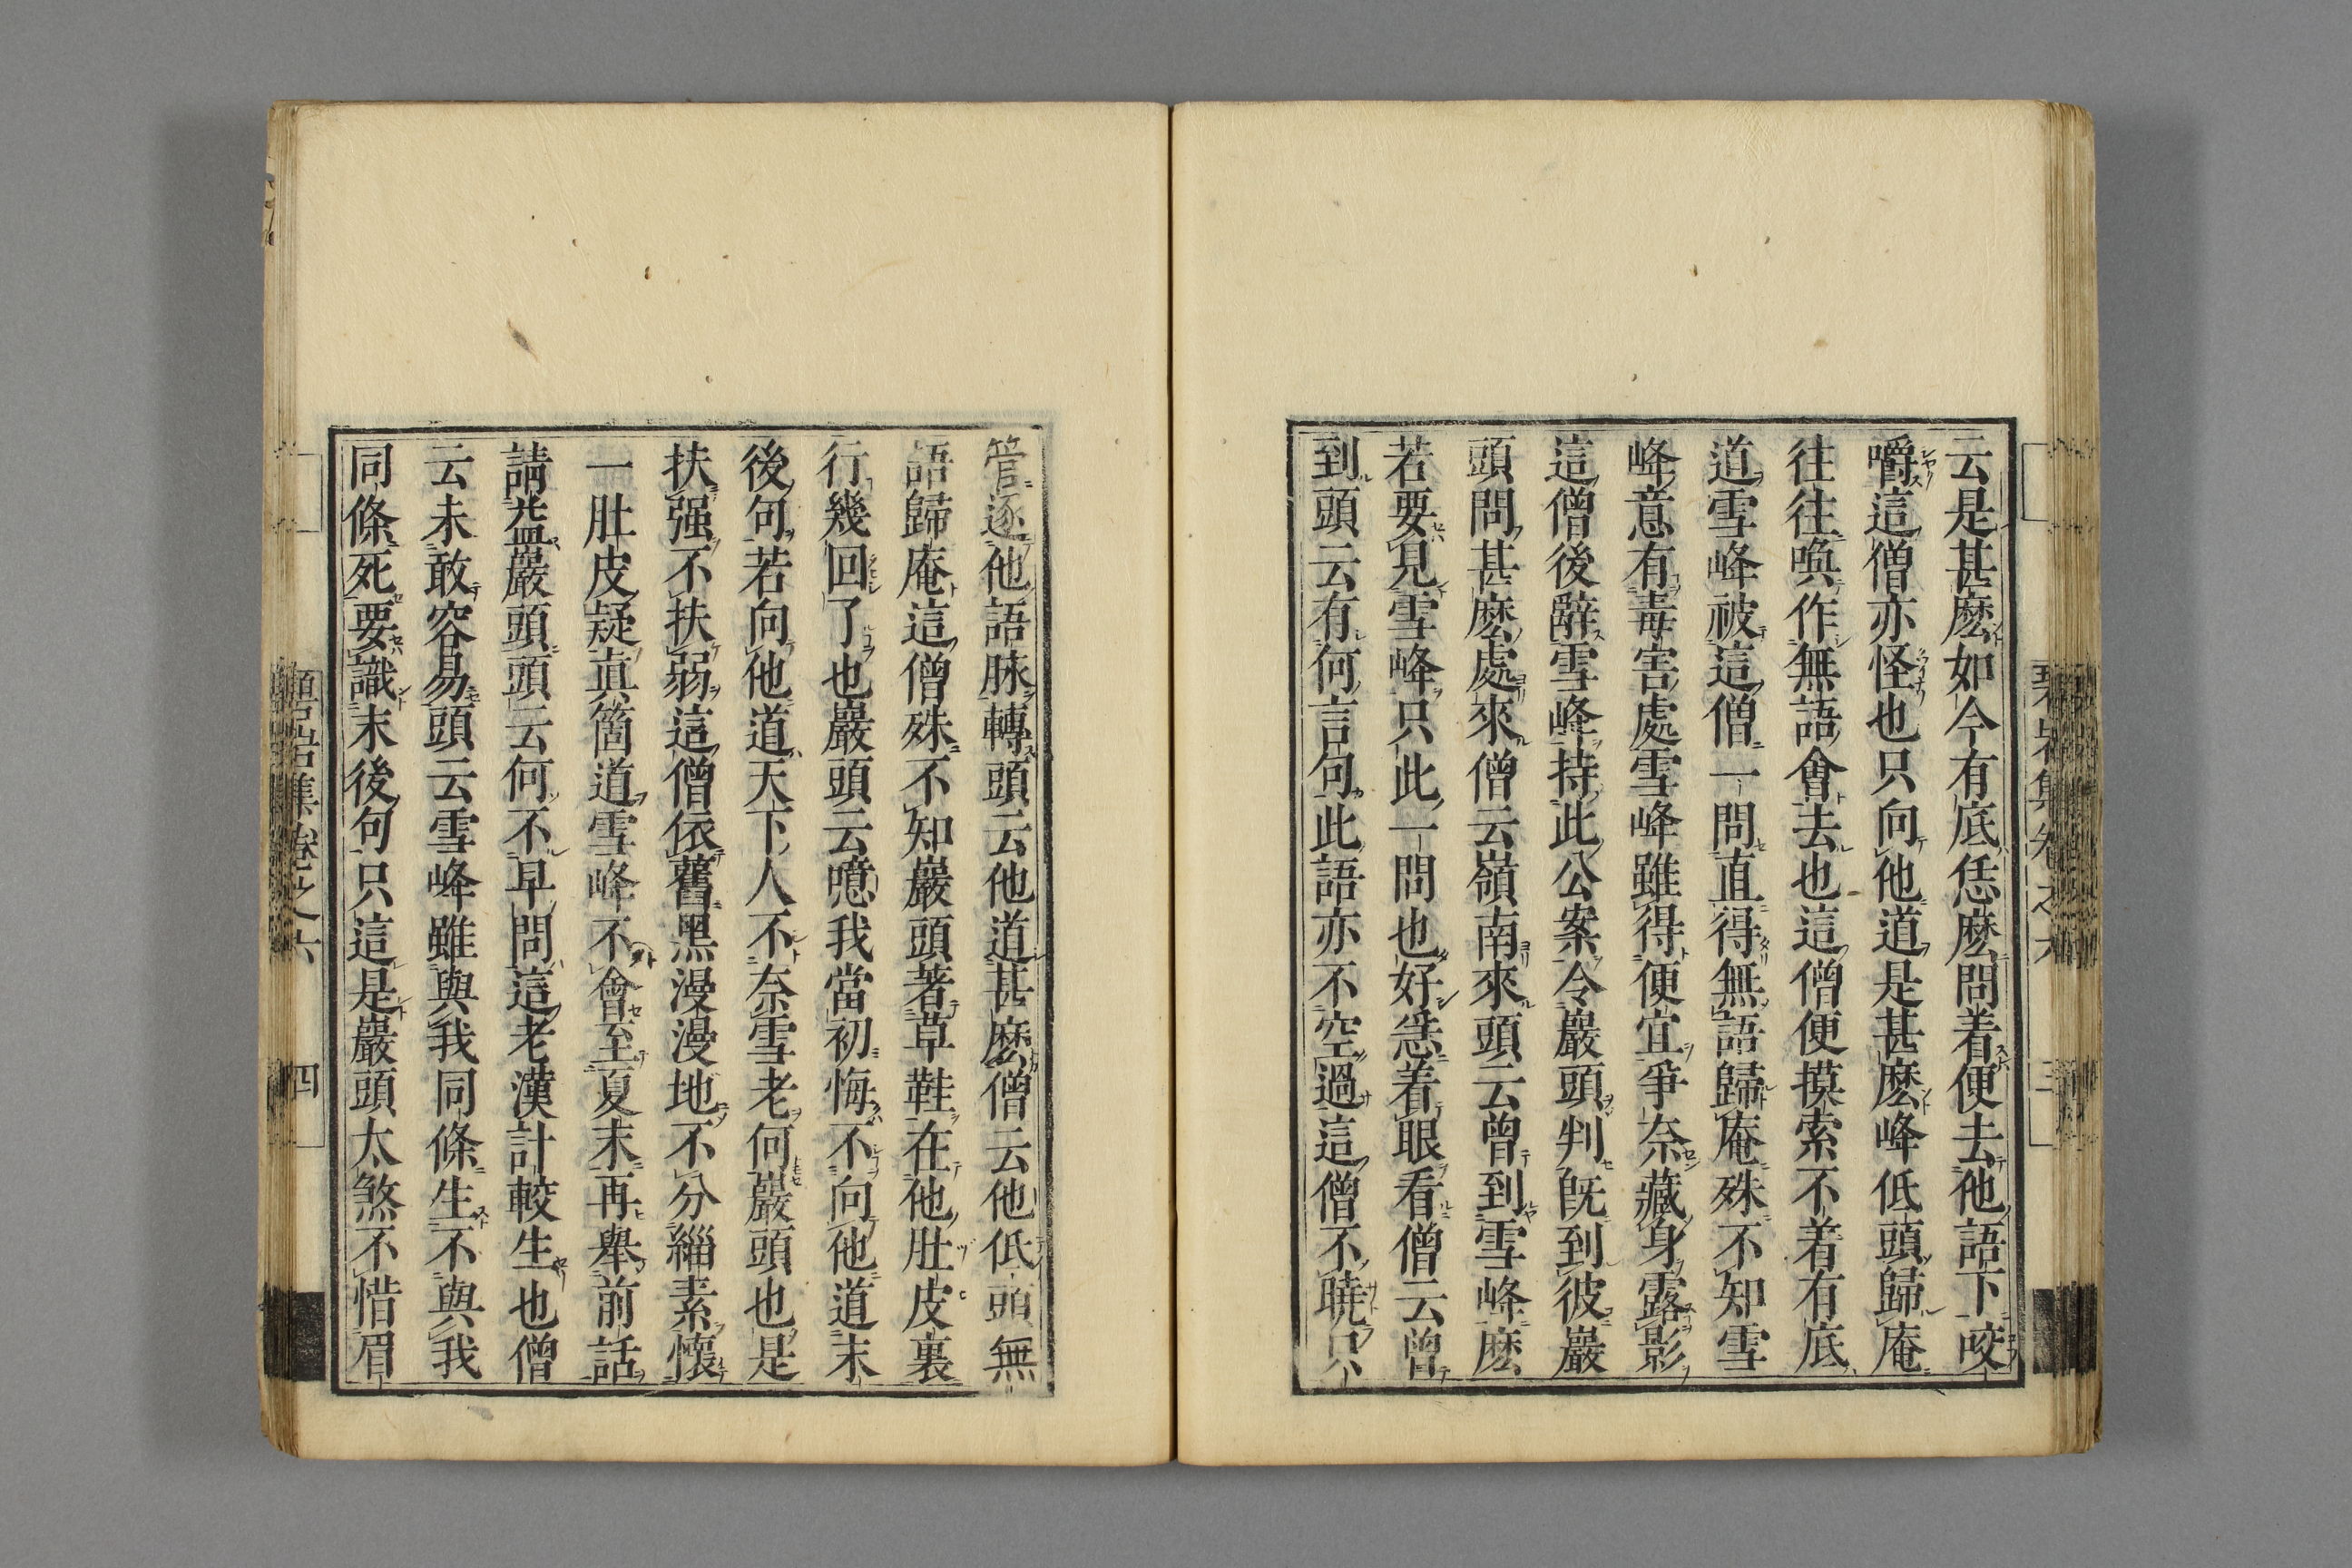 云是甚麽如今有底恁麽問着便去他語下咬
嚼這僧亦怪也只向他道是甚麽峰低頭歸庵
往往喚作無語會去也這僧便摸索不着有底
道雪峰被這僧一問直得無語歸庵殊不知雪
峰意有毒害處雪峰雖得便宜爭奈藏身露影
這僧後辭雪峰持此公案令巖頭判既到彼巖
頭問甚麽處來僧云嶺南來頭云曾到雪峰麽
若要見雪峰只此一問也好急着眼看僧云曾
到頭云有何言句此語亦不空過這僧不曉只
管逐他語脉轉頭云他道甚麽僧云他低頭無
語歸庵這僧殊不知巖頭著草鞋在他肚皮裏
行幾回了也巖頭云噫我當初悔不向他道末
後句若向他道天下人不奈雪老何巖頭也是
扶强不扶弱這僧依舊黑漫漫地不分緇素懷
一肚皮疑真箇道雪峰不會至夏末再舉前話
請益巖頭頭云何不早問這老漢計較生也僧
云未敢容易頭云雪峰雖與我同條生不與我
同條死要識末後句只這是巖頭太煞不惜眉
碧岩集卷之六
四